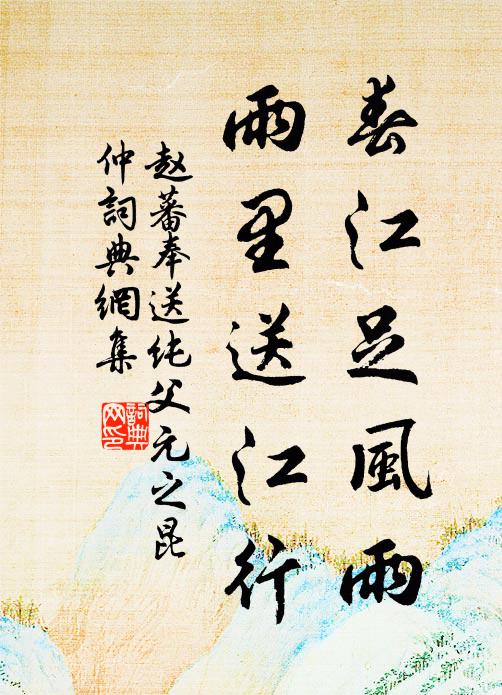 春江足風雨
雨里送江行
赵蕃奉送纯父元之昆
仲詞典網集
詞典
网印